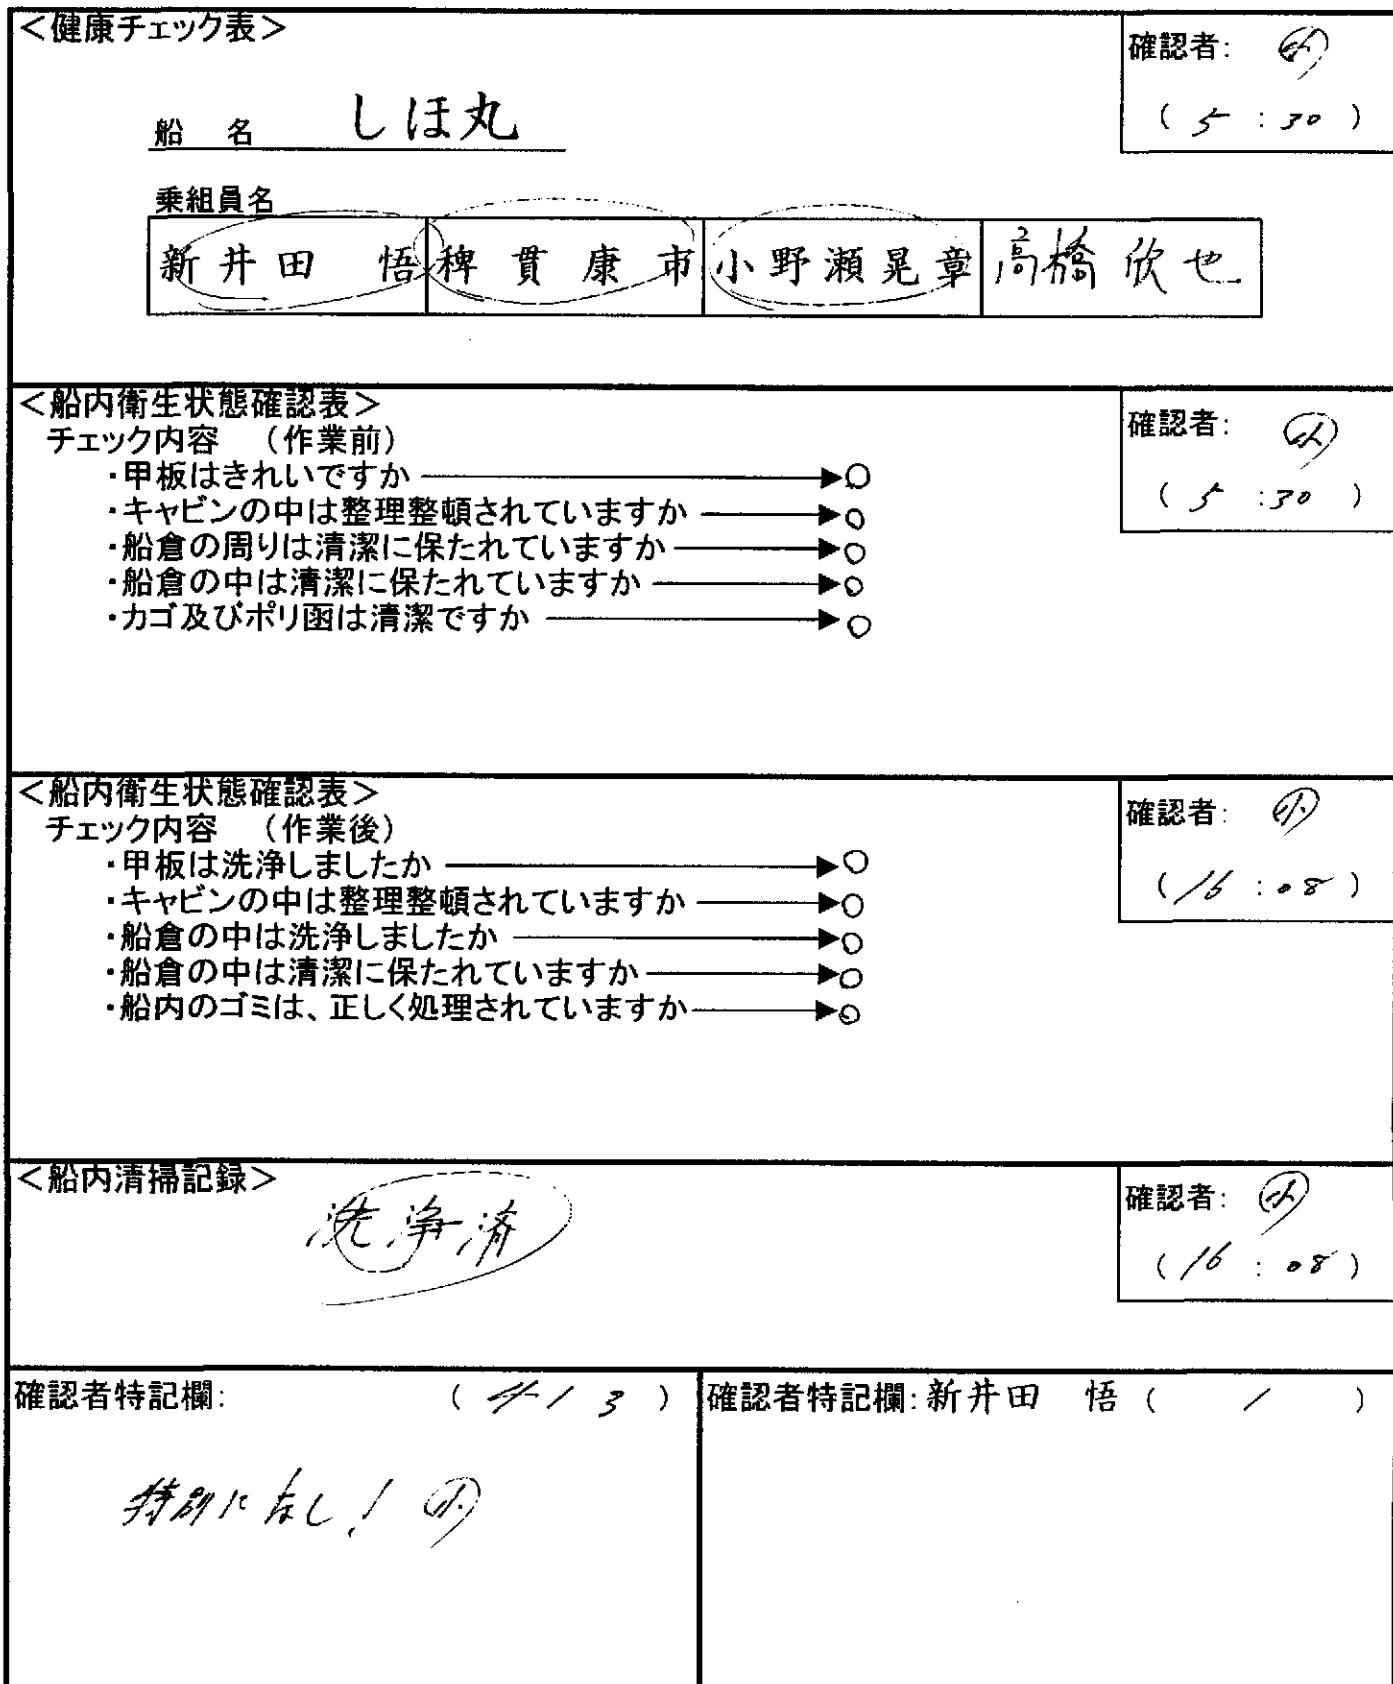 ＜健康チェック表＞
確認者: 小
( 5 : 30 )
船　名　しほ丸
乗組員名
新井田　悟　稗貫康市　小野瀬晃章　高橋欣也
＜船内衛生状態確認表＞
確認者: 小
( 5 : 30 )
チェック内容　（作業前）
・甲板はきれいですか → ○
・キャビンの中は整理整頓されていますか → ○
・船倉の周りは清潔に保たれていますか → ○
・船倉の中は清潔に保たれていますか → ○
・カゴ及びポリ函は清潔ですか → ○
＜船内衛生状態確認表＞
確認者: 小
( 16 : 08 )
チェック内容　（作業後）
・甲板は洗浄しましたか → ○
・キャビンの中は整理整頓されていますか → ○
・船倉の中は洗浄しましたか → ○
・船倉の中は清潔に保たれていますか → ○
・船内のゴミは、正しく処理されていますか → ○
＜船内清掃記録＞
確認者: 小
( 16 : 08 )
洗浄済
確認者特記欄:　( 4 / 3 )
特別になし! 小
確認者特記欄: 新井田　悟 (　/　)